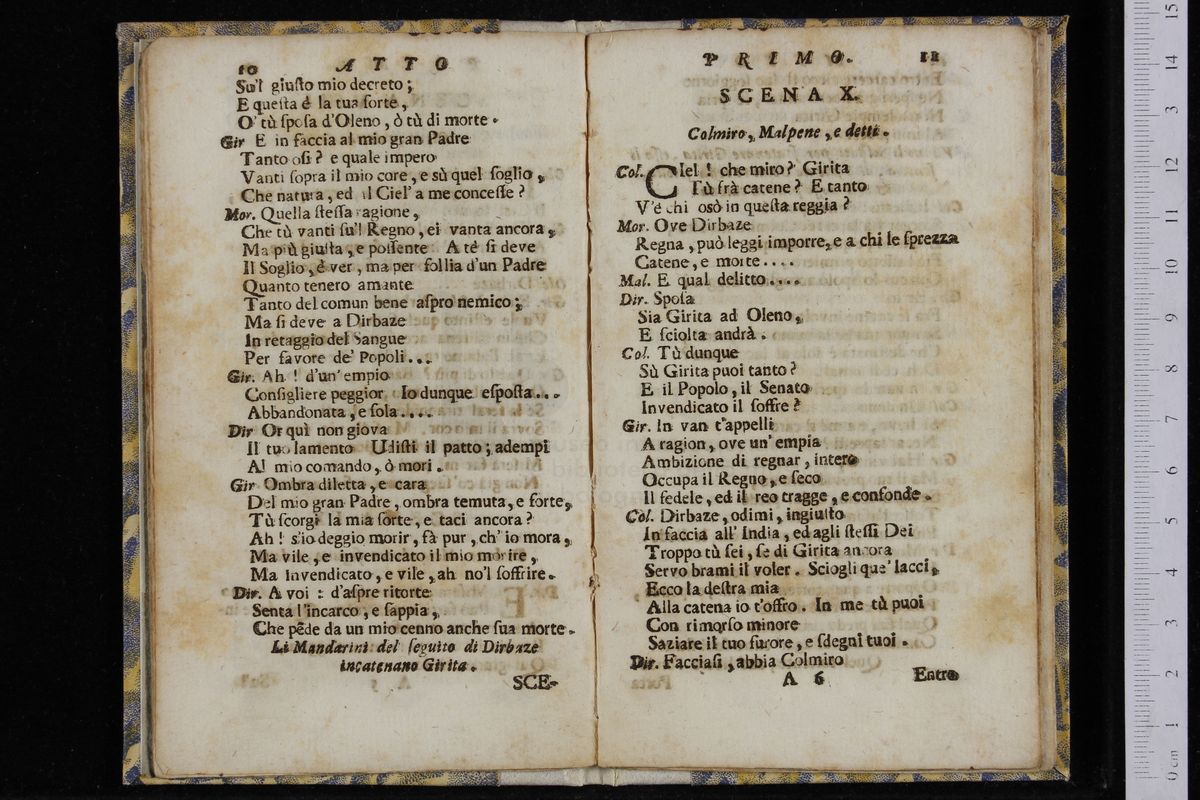 10 ATTO
Su'l giusto mio decreto;
E questa è la tua sorte,
O' tù sposa d'Oleno, ò tù di morte.
Gir E in faccia al mio gran Padre
Tanto osi? e quale impero
Vanti sopra il mio core, e sù quel soglio,
Che natura, ed il Ciel' a me concesse?
Mor. Quella stessa ragione,
Che tù vanti su'l Regno, ei vanta ancora,
Ma più giusta, e possente A tè si deve
Il Soglio, è ver, ma per follia d'un Padre
Quanto tenero amante
Tanto del comun bene aspro nemico;
Ma si deve a Dirbaze
In retaggio del Sangue
Per favore de' Popoli...
Gir. Ah! d'un' empio
Consigliere peggior Io dunque esposta...
Abbandonata, e sola....
Dir Or quì non giova
Il tuo lamento Udisti il patto; adempi
Al mio comando, ò mori.
Gir Ombra diletta, e cara
Del mio gran Padre, ombra temuta, e forte,
Tù scorgi la mia sorte, e taci ancora?
Ah! s'io deggio morir, fà pur, ch'io mora,
Ma vile, e invendicato il mio morire,
Ma Invendicato, e vile, ah no'l soffrire.
Dir. A voi: d'aspre ritorte
Senta l'incarco, e sappia,
Che pẽde da un mio cenno anche sua morte.
Li Mandarini del seguito di Dirbaze
incatenano Girita.
SCE-
PRIMO. 11
SCENA X.
Colmiro, Malpene, e detti.
Col. Ciel! che miro? Girita
Tù frà catene? E tanto
V'è chi osò in questa reggia?
Mor. Ove Dirbaze
Regna, può leggi imporre, e a chi le sprezza
Catene, e morte....
Mal. E qual delitto....
Dir. Sposa
Sia Girita ad Oleno,
E sciolta andrà.
Col. Tù dunque
Sù Girita puoi tanto?
E il Popolo, il Senato
Invendicato il soffre?
Gir. In van t'appelli
A ragion, ove un' empia
Ambizione di regnar, intero
Occupa il Regno, e seco
Il fedele, ed il reo tragge, e confonde.
Col. Dirbaze, odimi, ingiusto
In faccia all' India, ed agli stessi Dei
Troppo tù sei, se di Girita ancora
Servo brami il voler. Sciogli que' lacci,
Ecco la destra mia
Alla catena io t'offro. In me tù puoi
Con rimorso minore
Saziare il tuo furore, e sdegni tuoi.
Dir. Facciasi, abbia Colmiro
A 6 Entro